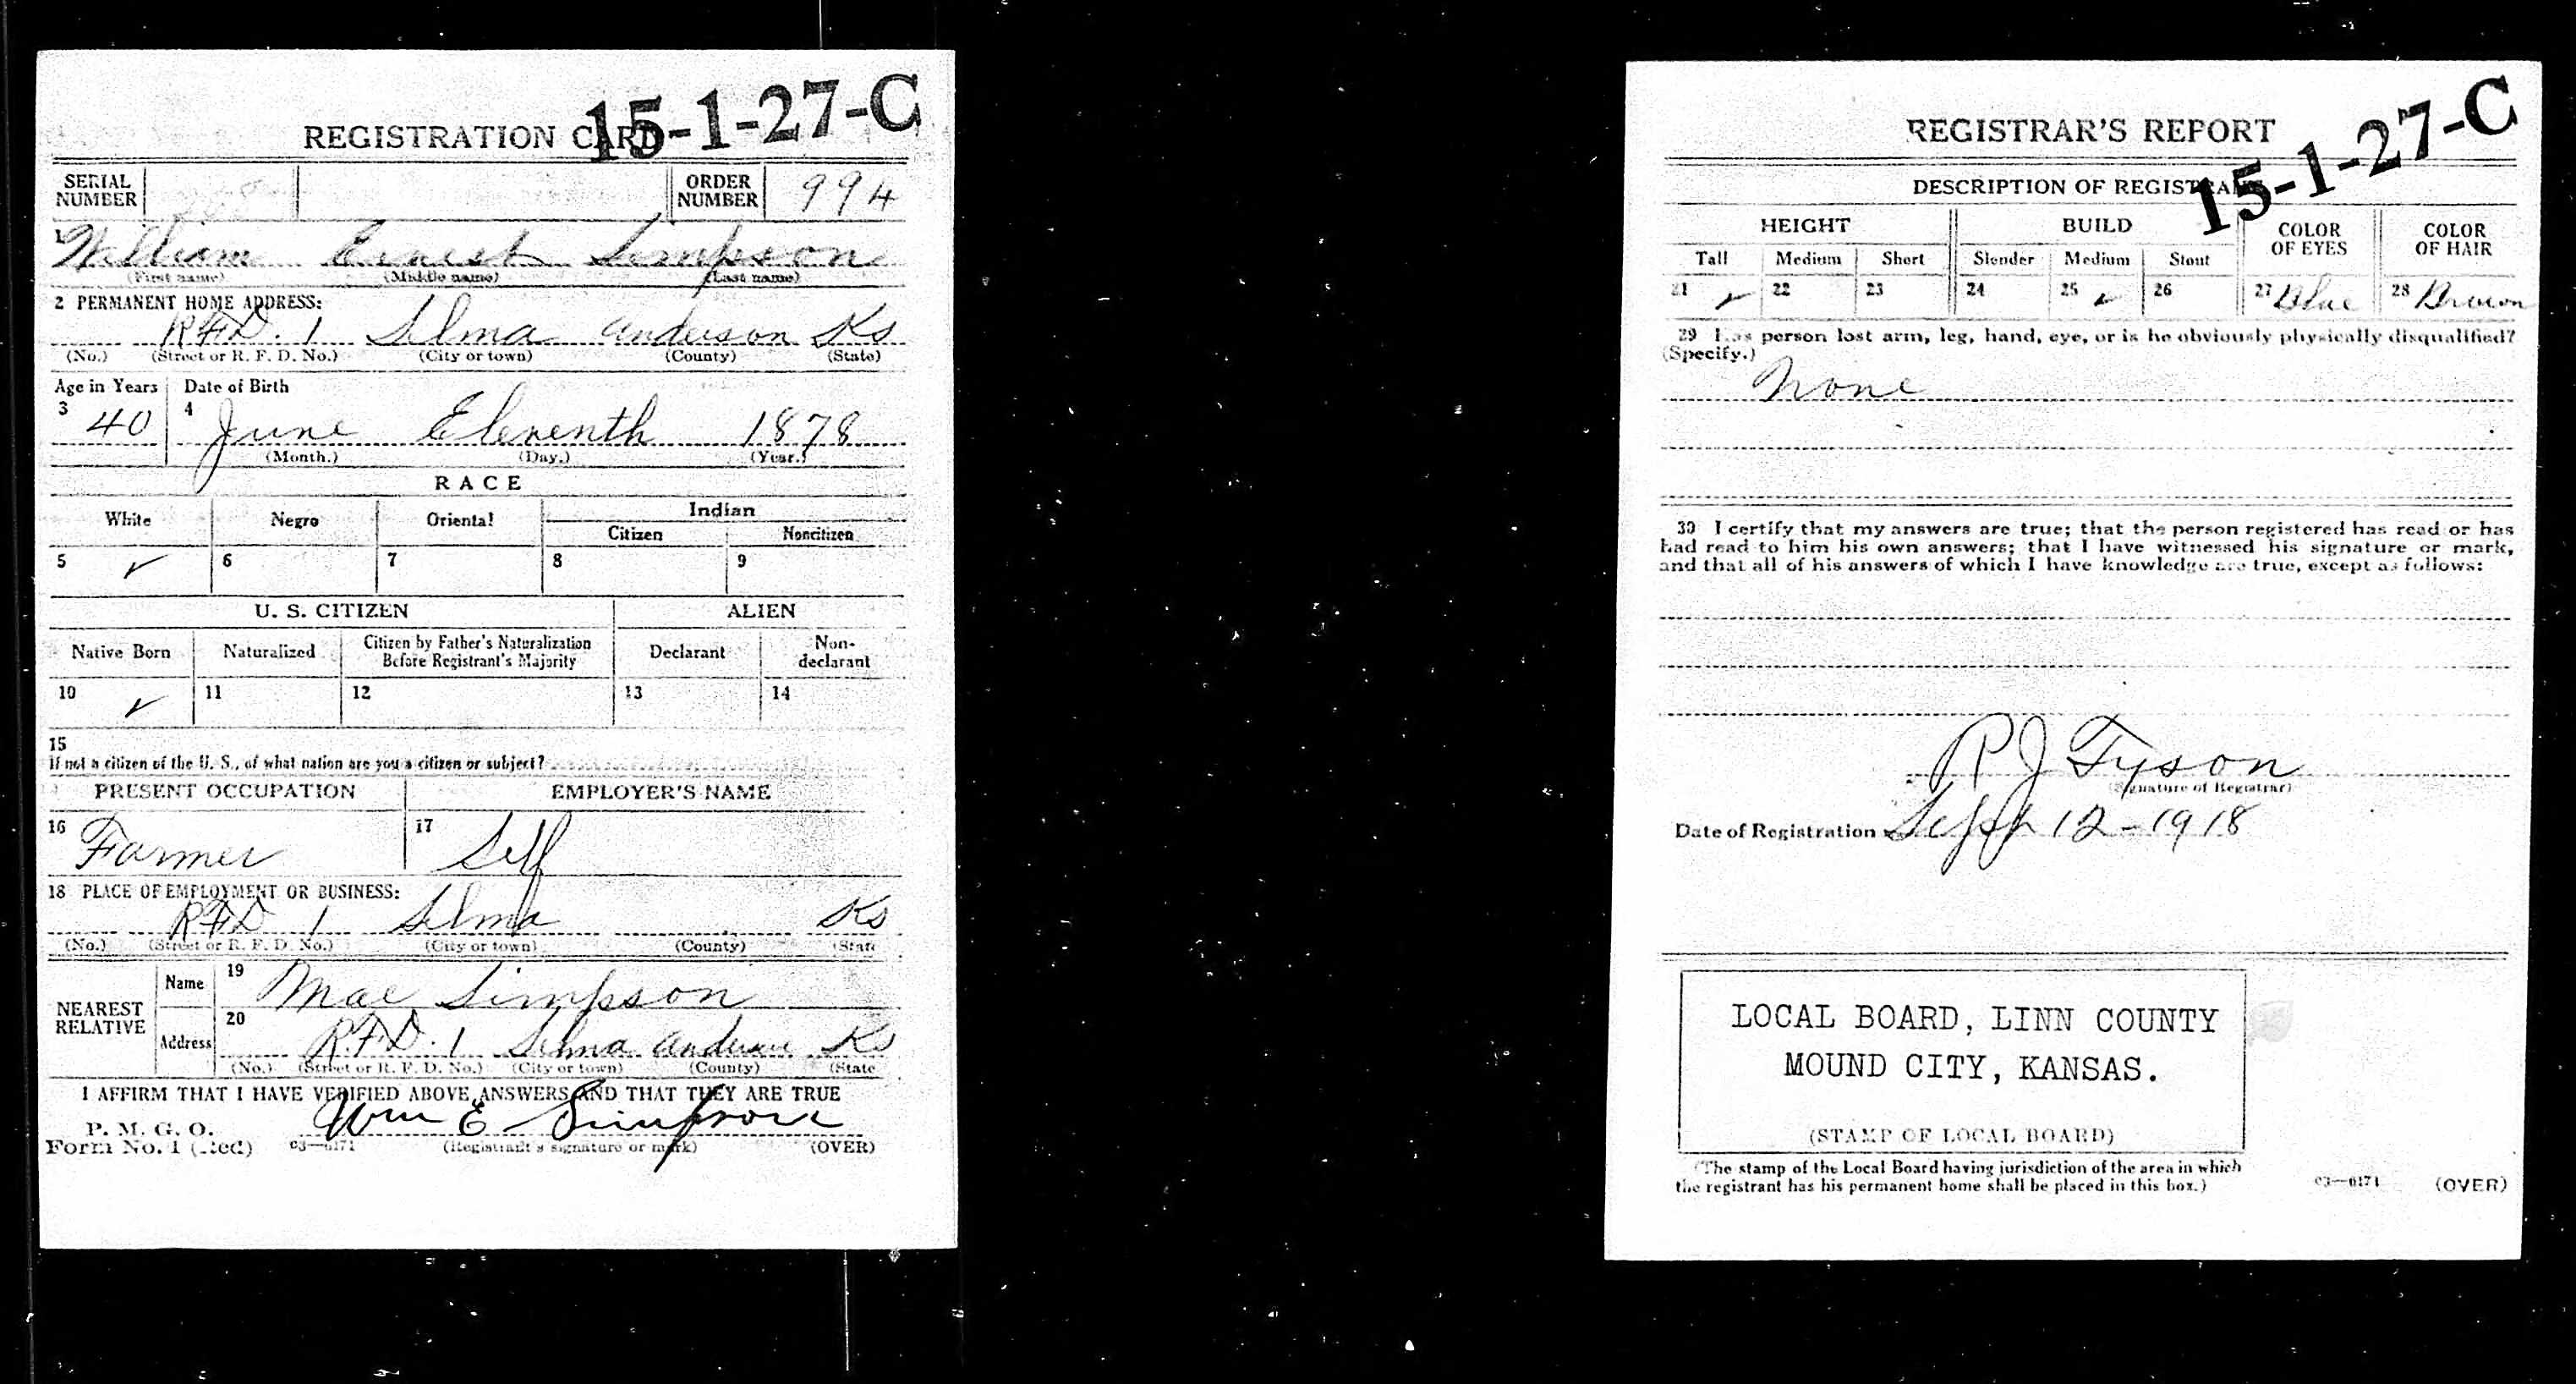 15-1-27-C
REGISTRATION CARD
SERIAL NUMBER ORDER NUMBER 994
1 William Ernest Simpson
(First name) (Middle name) (Last name)
2 PERMANENT HOME ADDRESS:
R.F.D. 1 Selma Anderson Ks
(No.) (Street or R. F. D. No.) (City or town) (County) (State)
Age in Years Date of Birth
3 40 4 June Eleventh 1878
(Month.) (Day.) (Year.)
RACE
White Negro Oriental Indian
Citizen Noncitizen
5 ✓ 6 7 8 9
U. S. CITIZEN ALIEN
Native Born Naturalized Citizen by Father's Naturalization Before Registrant's Majority Declarant Non-declarant
10 ✓ 11 12 13 14
15
If not a citizen of the U. S., of what nation are you a citizen or subject?
PRESENT OCCUPATION EMPLOYER'S NAME
16 Farmer 17 Self
18 PLACE OF EMPLOYMENT OR BUSINESS:
RFD 1 Selma Ks
(No.) (Street or R. F. D. No.) (City or town) (County) (State
NEAREST RELATIVE
Name 19 Mae Simpson
Address 20 R.F.D. 1 Selma Anderson Ks
(No.) (Street or R. F. D. No.) (City or town) (County) (State
I AFFIRM THAT I HAVE VERIFIED ABOVE ANSWERS AND THAT THEY ARE TRUE
P. M. G. O.
Form No. 1 (Red) c3—6171 Wm E Simpson
(Registrant's signature or mark) (OVER)
REGISTRAR'S REPORT
15-1-27-C
DESCRIPTION OF REGISTRANT
HEIGHT BUILD COLOR OF EYES COLOR OF HAIR
Tall Medium Short Slender Medium Stout
21 ✓ 22 23 24 25 ✓ 26 27 Blue 28 Brown
29 Has person lost arm, leg, hand, eye, or is he obviously physically disqualified?
(Specify.)
None
30 I certify that my answers are true; that the person registered has read or has
had read to him his own answers; that I have witnessed his signature or mark,
and that all of his answers of which I have knowledge are true, except as follows:
R J Tyson
(Signature of Registrar)
Date of Registration Sept 12-1918
LOCAL BOARD, LINN COUNTY
MOUND CITY, KANSAS.
(STAMP OF LOCAL BOARD)
(The stamp of the Local Board having jurisdiction of the area in which
the registrant has his permanent home shall be placed in this box.)
c3—6171 (OVER)